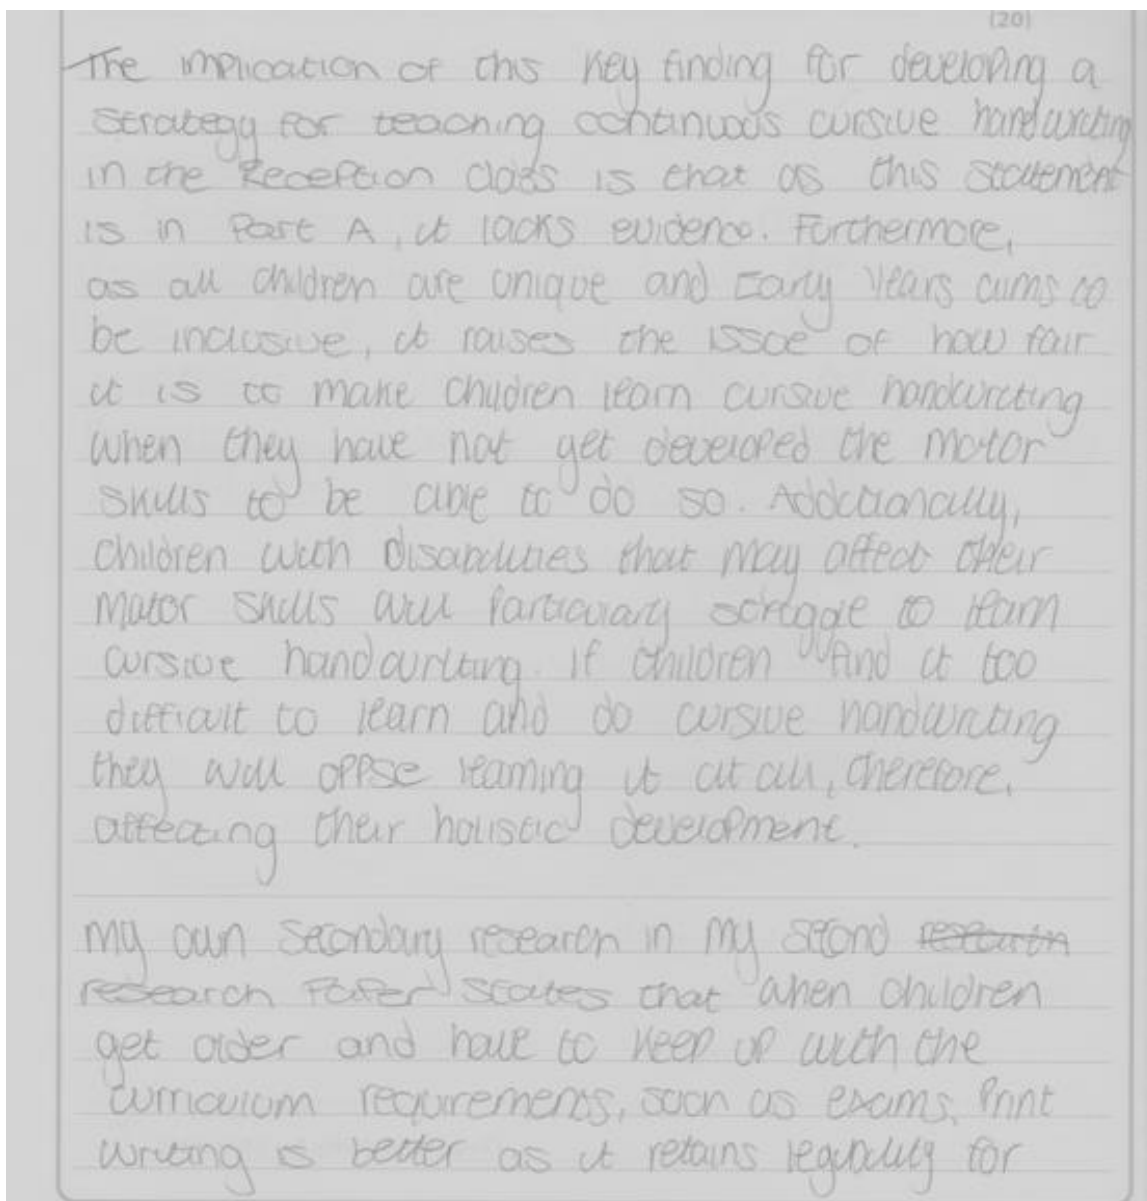 (20)
The implication of this key finding for developing a
strategy for teaching continuous cursive handwriting
in the Reception class is that as this statement
is in Part A, it lacks evidence. Furthermore,
as all children are unique and Early Years aims to
be inclusive, it raises the issue of how fair
it is to make children learn cursive handwriting
when they have not yet developed the motor
skills to be able to do so. Additionally,
children with disabilities that may affect their
motor skills will particulary struggle to learn
cursive handwriting. If children find it too
difficult to learn and do cursive handwriting
they will oppse learning it at all, therefore,
affecting their holistic development.
My own secondary research in my second research
research paper states that when children
get older and have to keep up with the
curriculum requirements, such as exams, print
writing is better as it retains legibility for